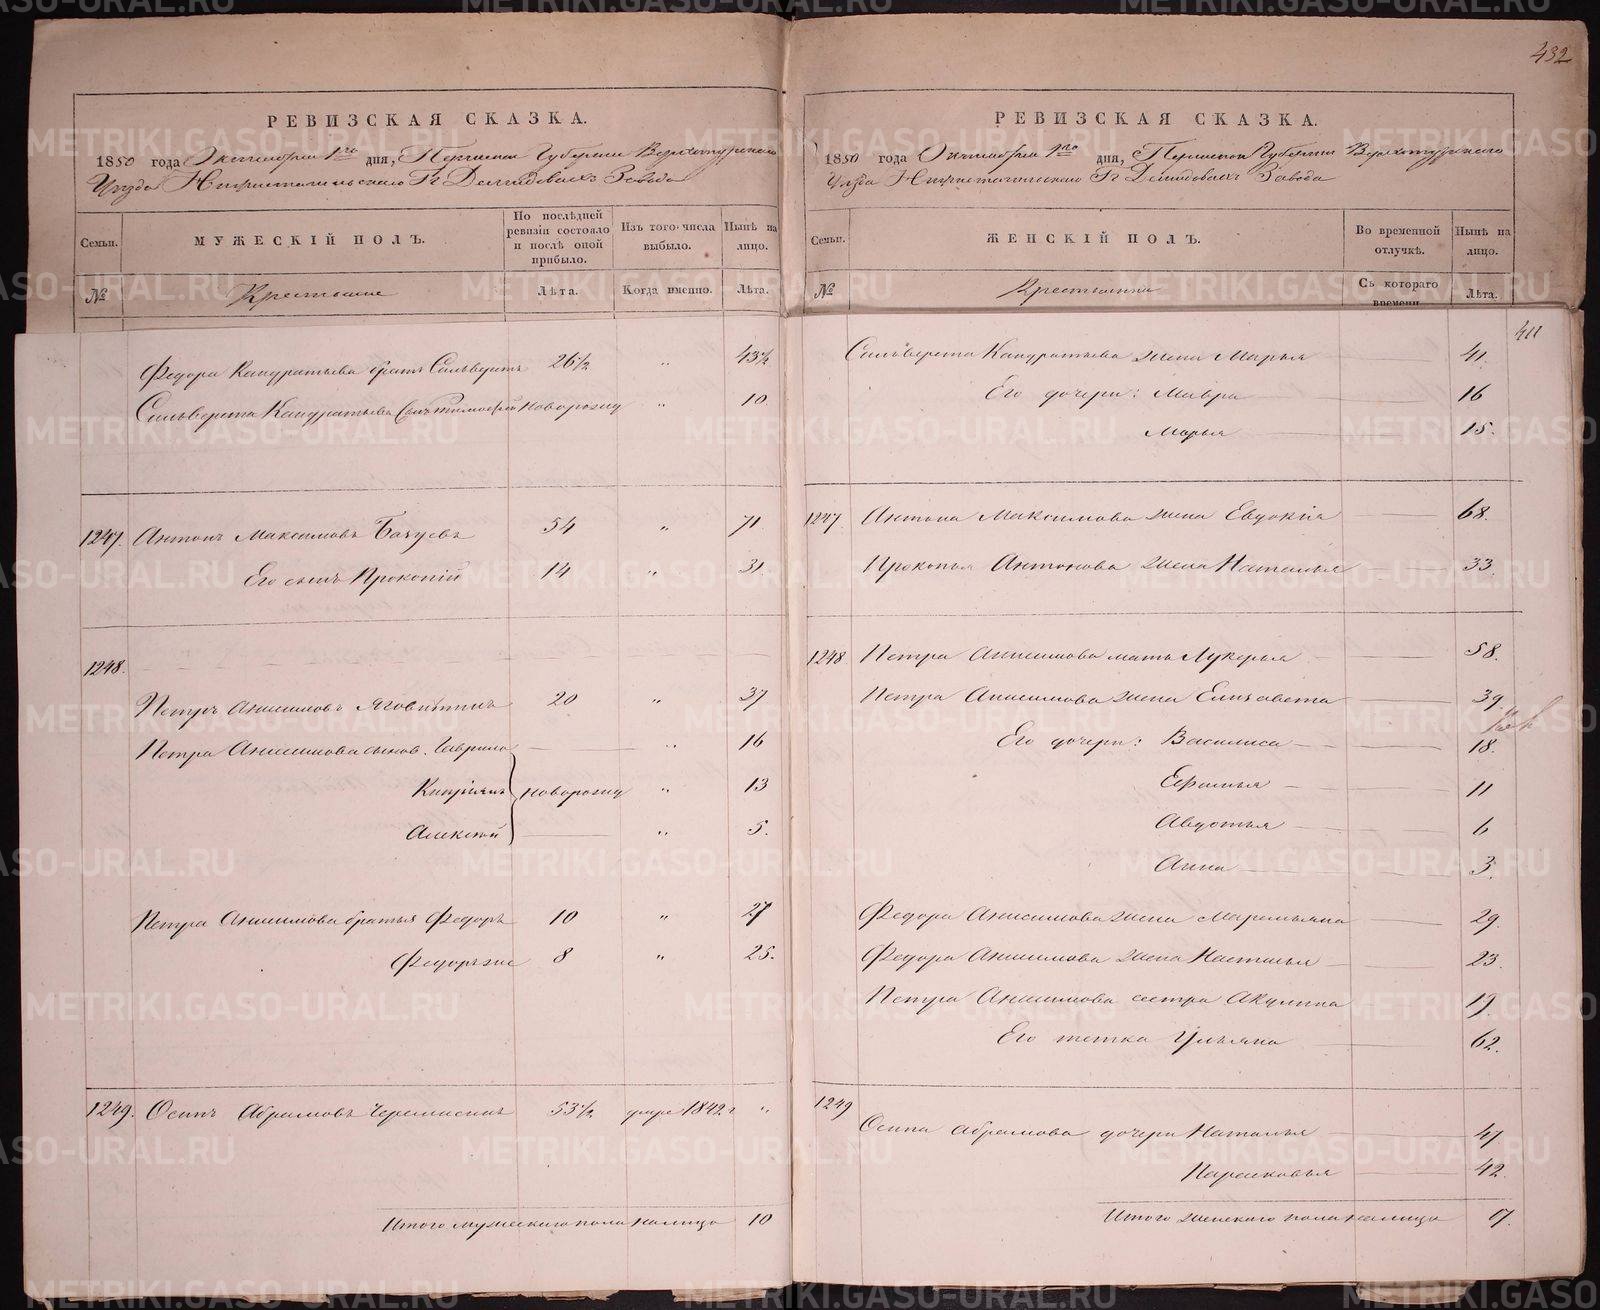 432
РЕВИЗСКАЯ СКАЗКА.
1850 года Октября 1го дня, Пермской Губернии Верхотурского
Уезда Нижнетагильского Гг Демидовыхъ Завода
Семьи. МУЖЕСКІЙ ПОЛЪ. По послѣдней ревизіи состояло и послѣ оной прибыло. Изъ того числа выбыло. Нынѣ на лицо.
№ Крестьяне Лѣта. Когда именно. Лѣта.
Федора Кандратьева братъ Сильверстъ 26½ " 43½
Сильверста Кандратьева сынъ Тимофей новорожд " 10
1247. Антонъ Максимовъ 54 " 71
Его сынъ Прокопій 14 " 31
1248.
Петръ Анисимовъ Яговитинъ 20 " 37
Петра Анисимова сынов. Гаврило " 16
Кипріянъ новорожд " 13
Алексѣй " 5.
Петра Анисимова братья Федоръ 10 " 27
Федоръ же 8 " 25.
1249. Осипъ Абрамовъ Черемисинъ 53½ умре 1842 г "
Итого мужескаго пола налицо 10
РЕВИЗСКАЯ СКАЗКА.
1850 года Октября 1го дня, Пермской Губерніи Верхотурского
Уезда Нижнетагильского Гг Демидовыхъ Завода
Семьи. ЖЕНСКІЙ ПОЛЪ. Во временной отлучкѣ. Нынѣ на лицо.
№ Крестьянки Съ котораго времени Лѣта.
411
Сильверста Кандратьева жена Марья 41.
Его дочери: Мавра 16
Марья 15.
1247. Антона Максимова жена Евдокія 68.
Прокопья Антонова жена Наталья 33
1248 Петра Анисимова мать Лукерья 58.
Петра Анисимова жена Елизавета 39
Его дочери: Василиса 18.
Ефимья 11
Авдотья 6
Анна 3.
Федора Анисимова жена Маремьяна 29.
Федора Анисимова жена Настасья 23.
Петра Анисимова сестра Акулина 19.
Его тетка Ульяна 62.
1249
Осипа Абрамова дочери Наталья 47
Парасковья 42.
Итого женскаго пола налицо 17.
METRIKI.GASO-URAL.RU